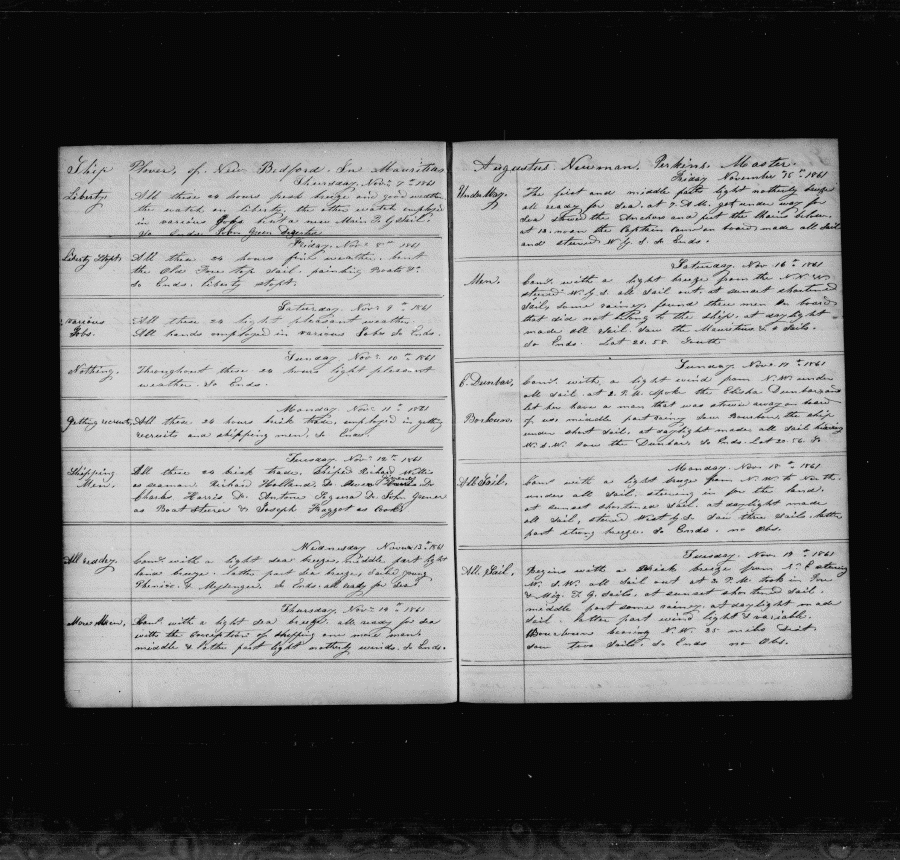 Ship Plover, of New Bedford. In Mauritius
Thursday. Novr 7th 1861
Liberty. All these 24 hours fresh breeze and good weather
the watch on liberty, the other watch employed
in various Jobs. bent a new Main T. G. Sail.
So Ends. John Green Deserted
Friday. Novr 8th 1861
Liberty Stopt. All these 24 hours fine weather. bent
the Old Fore top sail. painting Boats &c.
So Ends. liberty stopt.
Saturday. Novr 9th 1861
various All these 24 light pleasant weather
Jobs. All hands employed in various Jobs So Ends.
Sunday. Novr 10th 1861
Nothing. Throughout these 24 hours light pleasant
weather. So Ends.
Monday Novr 11th 1861
Getting recruits, All these 24 hours brisk trade, employed in getting
recruits and shipping men, So Ends.
Tuesday. Novr 12th 1861
Shipping All these 24 brisk trade. Shiped Richard Willis
Men. as seaman Richard Holland, Do
Charles Harris Do Antone Do John
as Boat Steerer & Joseph Faggot as Cook
Wednesday Novr 13th 1861
All readey. Com. with a light sea breeze, middle part light
land breeze. latter part sea breeze, Sailed
Phenice. & Messenger. So Ends. all ready for Sea.
Thursday. Novr 14th 1861
More Men, Com. with a light sea breeze. all ready for sea
with the exception of shipping one more man.
middle & latter part light northerly winds. So Ends.
Augustus Newman Perkins. Master.
Friday November 15th 1861
Under Way. The first and middle part light northerly breeze
all ready for sea. at 7 A.M. got under way for
Sea stowed the Anchors and put the chains below.
at 10. noon the Captain came on board made all Sail
and steered W by S. So Ends.
Saturday. Nov 16th 1861
Men. Com. with a light breeze from the N.N.W
steered W by S all Sail out. at sunset shortened
Sail, some rainey, found three men on board
that did not belong to the ship. at daylight
made all Sail. Saw the Mauritius & 2 Sails.
So Ends. Lat 20.58 South
Sunday. Novr 17th 1861
E. Dunbar, Com. with a light wind from N.W. under
all sail. at 2 P.M. spoke the Elisha Dunbar and
let him have a man that was stowed away on board
Bourboun. of us. middle part rainy Saw Bourbon, the ship
under short sail. at daylight made all sail
W.S.W. Saw the Dunbar. So Ends. Lat 20.56 So
Monday Nov 18th 1861
All Sail. Com. with a light breeze from N.W. to North.
under all Sail. steering in for the land.
at sunset shortened Sail. at daylight made
all Sail, steered West by S. Saw three Sails. latter
part strong breeze. So Ends. no Obs.
Tuesday. Nov. 19th 1861
All Sail. Begins with a brisk breeze from N. E steering
W. S. W. all Sail out at 2 P.M. took in Fore
& Miz. T. G. Sails. at sunset shortened Sail.
middle part some rainey. at daylight made
Sail. latter part wind light & variable.
Bourboun bearing N. W. 25 miles dist
Saw two Sails. So Ends no Obs.